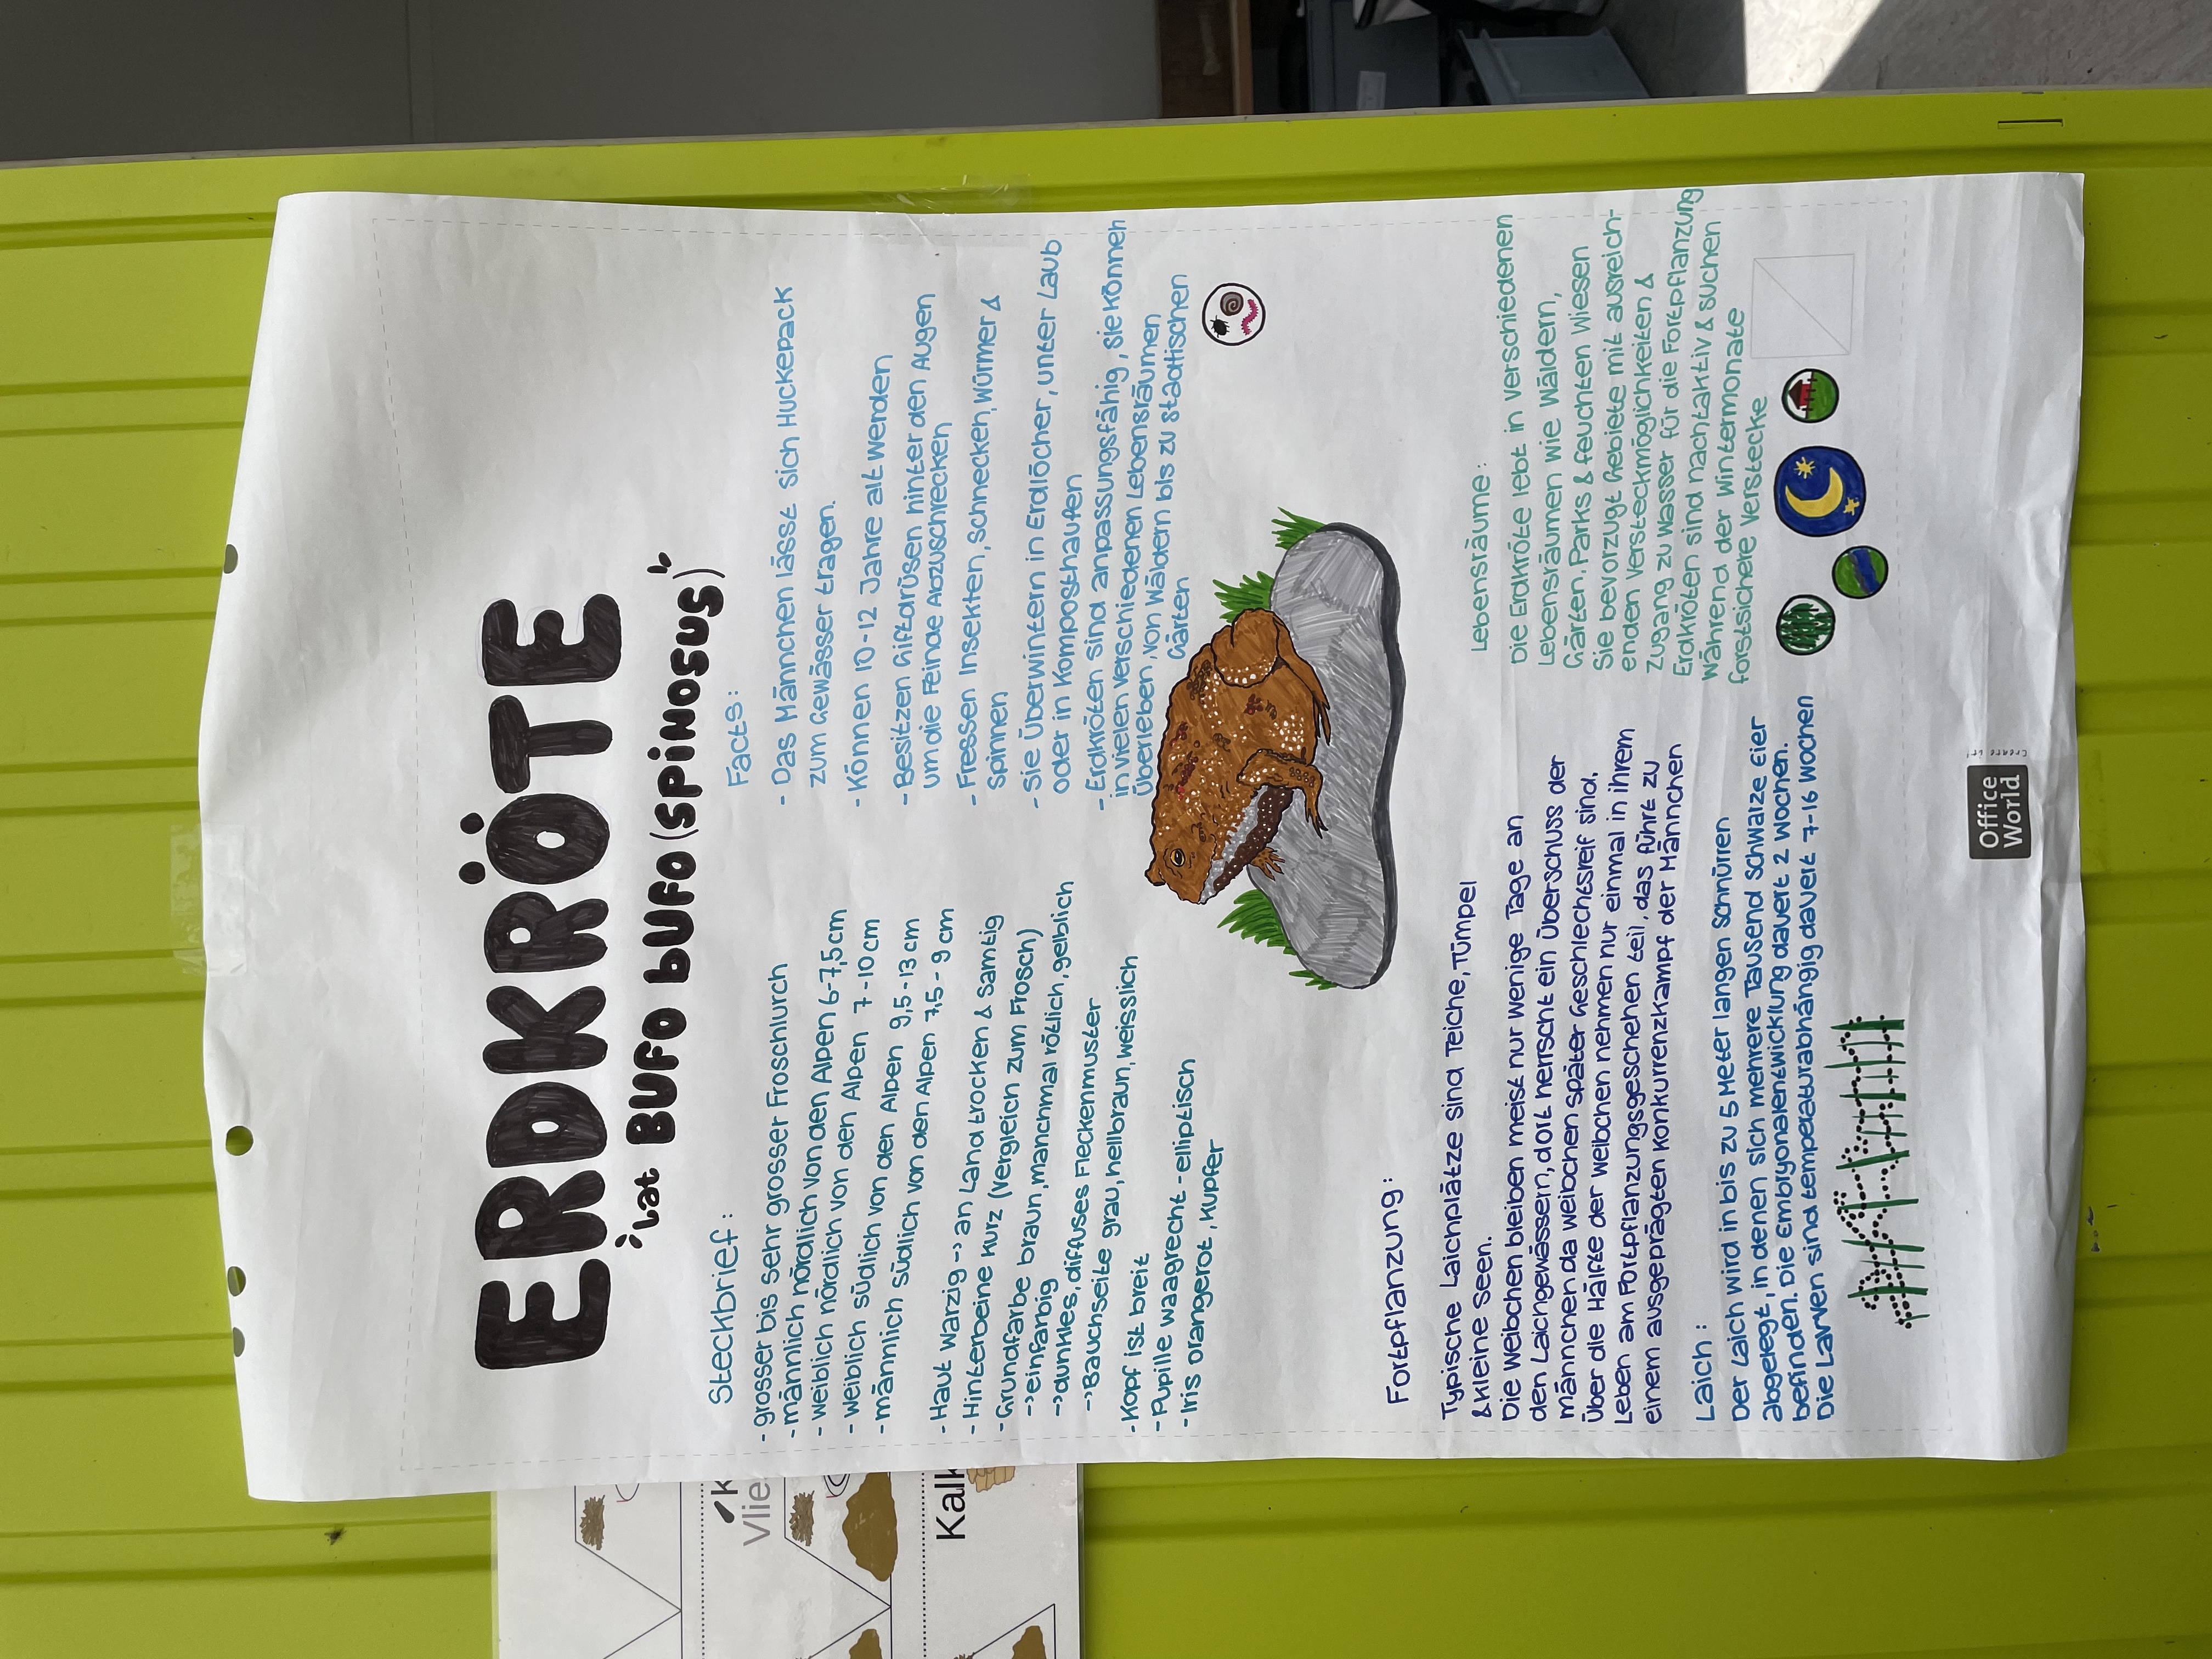 ERDKRÖTE
"Lat BUFO bUFO (SPINOSUS)"
Steckbrief:
- grosser bis sehr grosser Froschlurch
- männlich nördlich von den Alpen 6-7,5cm
- weiblich nördlich von den Alpen 7-10cm
- weiblich südlich von den Alpen 9,5-13cm
- männlich südlich von den Alpen 7,5-9 cm
- Haut warzig -> an Land trocken & samtig
- Hinterbeine kurz (Vergleich zum Frosch)
- Grundfarbe braun, manchmal rötlich, gelblich
-> einfarbig
-> dunkles, diffuses Fleckenmuster
-> Bauchseite grau, hellbraun, weisslich
- Kopf ist breit
- Pupille waagrecht - elliptisch
- Iris orangerot, kupfer
Facts:
- Das Männchen lässt sich Huckepack
zum Gewässer tragen.
- Können 10-12 Jahre alt werden
- Besitzen Giftdrüsen hinter den Augen
um die Feinde Abzuschrecken
- Fressen Insekten, schnecken, würmer &
Spinnen
- Sie Überwintern in Erdlöcher, unter Laub
oder in Komposthaufen
- Erdkröten sind anpassungsfähig, sie können
in vielen verschiedenen Lebensräumen
Überleben, von Wäldern bis zu städtischen
Gärten
Fortpflanzung:
Typische Laichplätze sind Teiche, Tümpel
& kleine Seen.
Die Weibchen bleiben meist nur wenige Tage an
den Laichgewässern, dort herrscht ein Überschuss der
Männchen da weibchen später Geschlechtsreif sind.
Über die Hälfte der weibchen nehmen nur einmal in ihrem
Leben am Fortpflanzungsgeschehen teil, das führt zu
einem ausgeprägten Konkurrenzkampf der Männchen
Laich:
Der Laich wird in bis zu 5 Meter langen Schnürren
abgelegt, in denen sich mehrere Tausend schwarze Eier
befinden. Die Embryonalentwicklung dauert 2 Wochen.
Die Larven sind temperaturabhängig dauert 7-16 Wochen
Lebensräume:
Die Erdkröte lebt in verschiedenen
Lebensräumen wie Wäldern,
Gärten, Parks & feuchten Wiesen
Sie bevorzugt Gebiete mit ausreich-
enden Versteckmöglichkeiten &
zugang zu Wasser für die Fortpflanzung
Erdkröten sind nachtaktiv & suchen
während der Wintermonate
forstsichere Verstecke
Office
World
Create it!
Vlie
Kalk